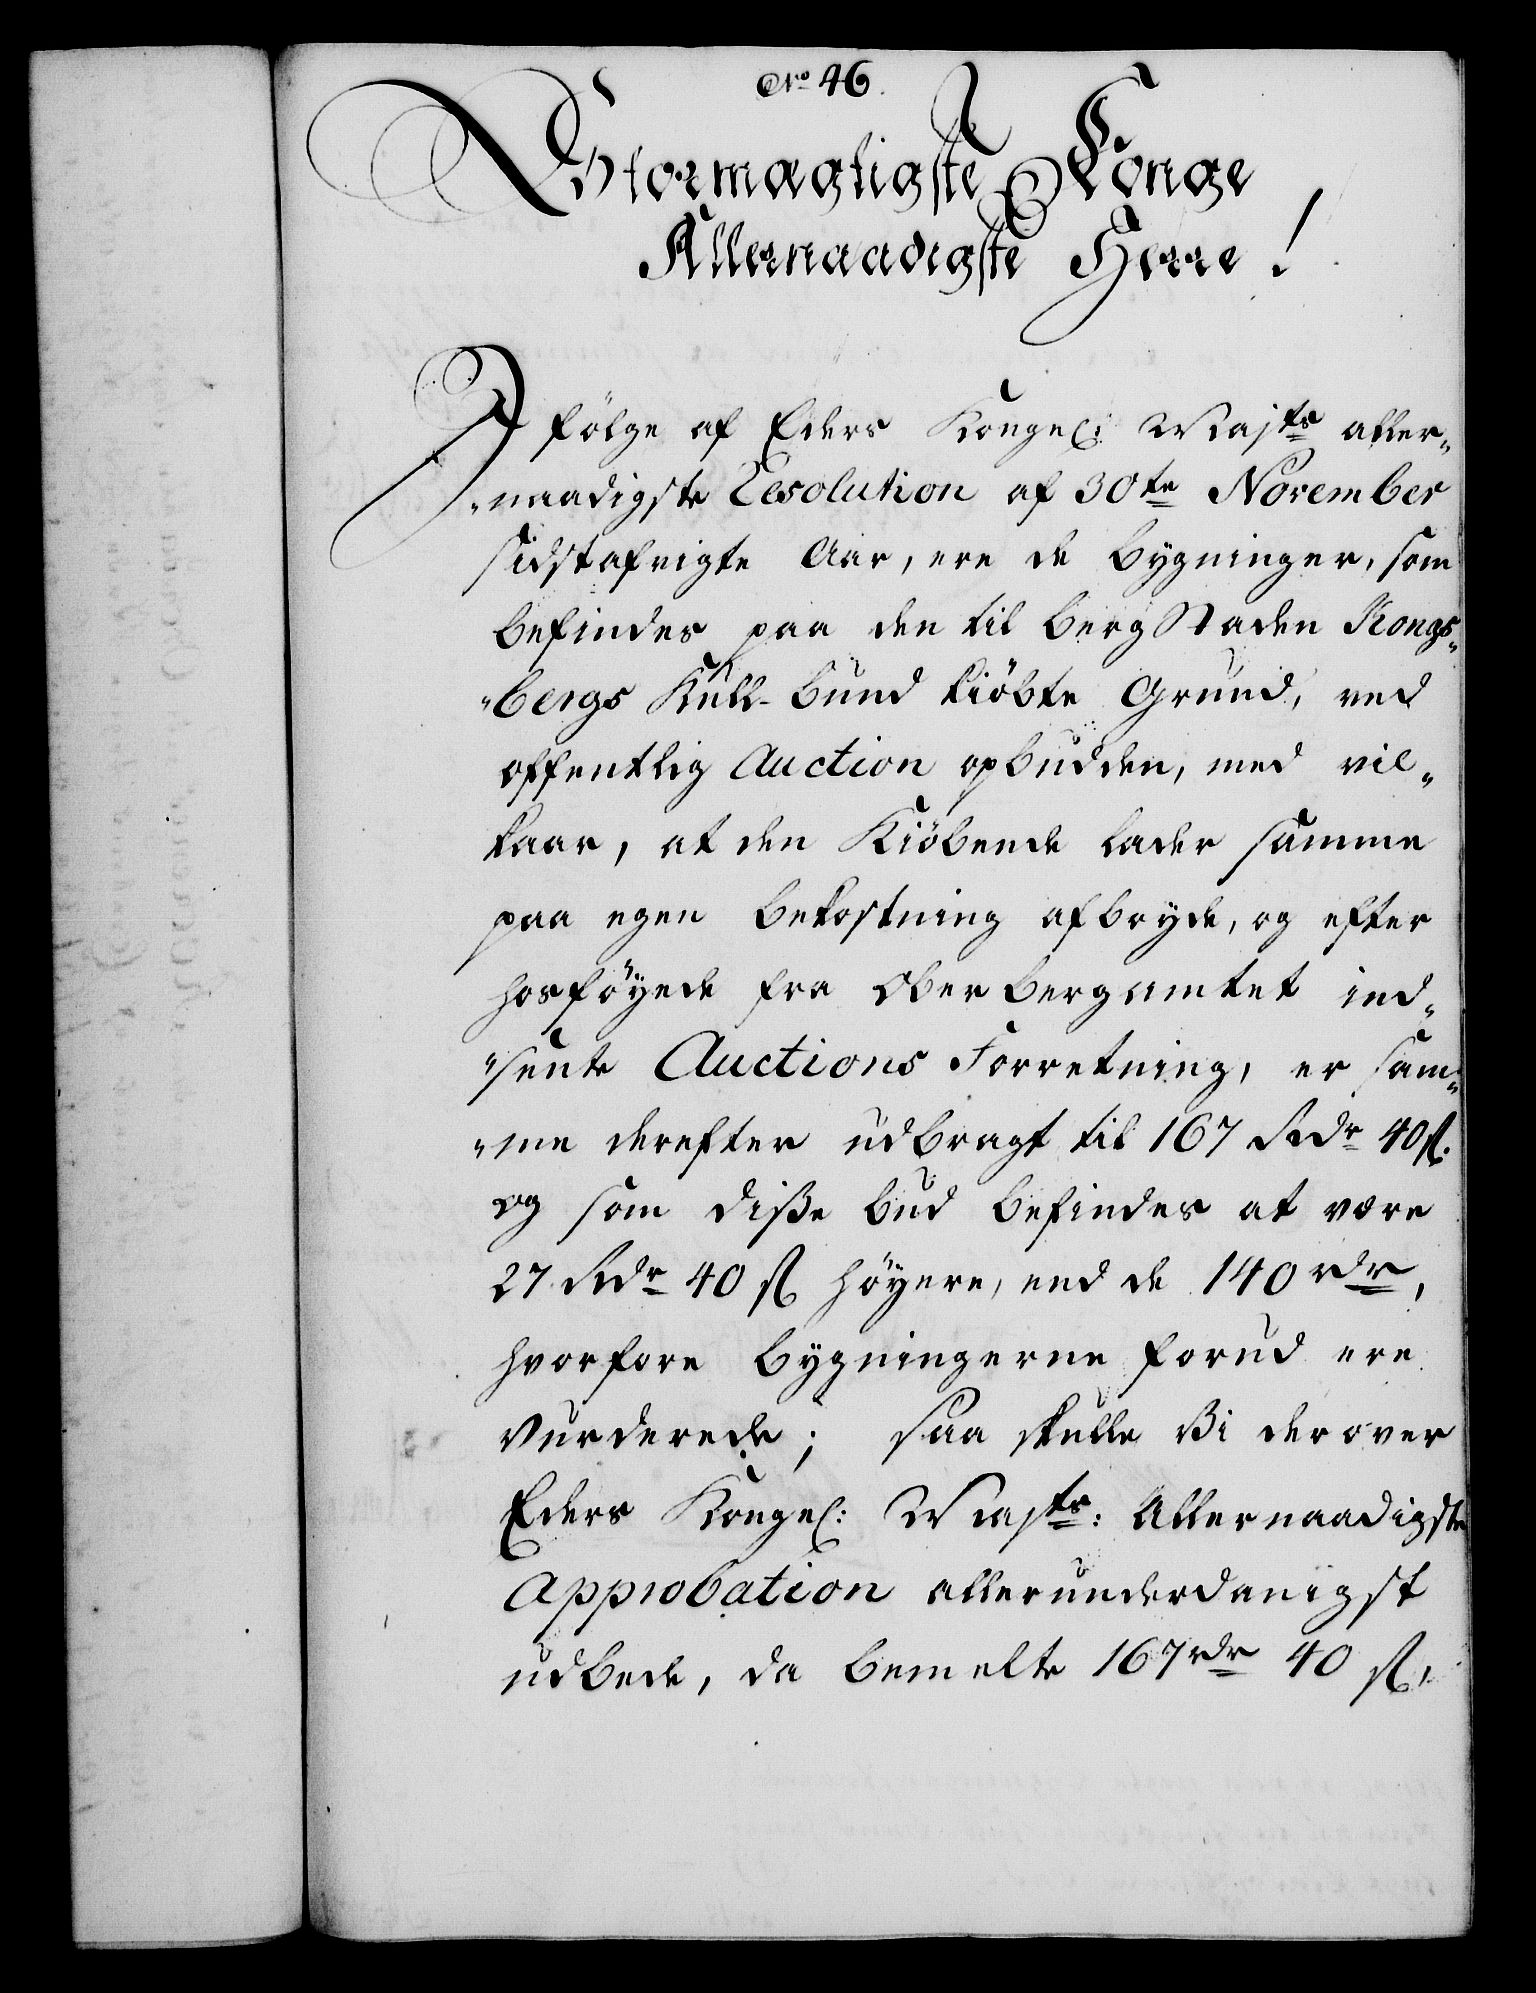 No 46.
Stormægtigste Konge
Allernaadigste Herre!
I følge af Eders Kongel: Majts aller„
„naadigste Resolution af 30te November
sidstafvigte Aar, ere de bygninger, som
befindes paa den til bergstaden Kongs„
„bergs Kull-bund kiöbte Grund, ved
offentlig Auction opbudden, med vil„
kaar, at den Kiöbende lader samme
paa egen bekostning afbryde, og efter
hosföyede fra Oberbergamtet ind„
„sente Auctions Forretning, er sam„
„me derefter udbragt til 167 Rdr 40 ß.
og som diße bud befindes at være
27 Rdr 40 ß höyere, end de 140 rdr,
hvorfore bygningerne forud ere
vurderede; saa skulle Vi derover
Eders Kongel: Majts: Allernaadigste
Approbation allerunderdanigst
udbede, da bemelte 167 rdr 40 ß,